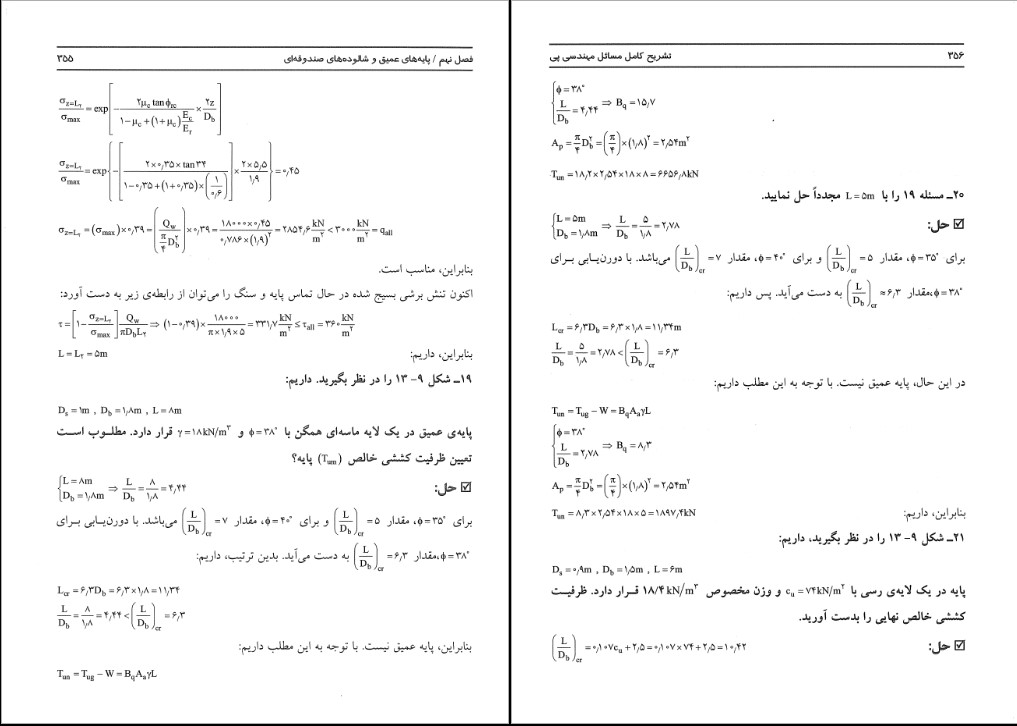 فصل نهم / پایه‌های عمیق و شالوده‌های صندوقه‌ای ۳۵۵
σ_{z=L۲}/σ_max = exp[- (۲μ_c tan φ_rc)/(۱-μ_c+(۱+μ_c)E_c/E_r) × ۲z/D_b]
σ_{z=L۲}/σ_max = exp{-[(۲×۰٫۳۵×tan ۳۴)/(۱-۰٫۳۵+(۱+۰٫۳۵)×(۱/۰٫۶))]×(۲×۵٫۵)/۱٫۹} = ۰٫۴۵
σ_{z=L۲} = (σ_max)×۰٫۳۹ = (Q_w/(π/۴ D_b^۲))×۰٫۳۹ = (۱۸۰۰۰×۰٫۴۵)/(۰٫۷۸۶×(۱٫۹)^۲) = ۲۸۵۴٫۶ kN/m^۲ < ۳۰۰۰ kN/m^۲ = q_all
بنابراین، مناسب است.
اکنون تنش برشی بسیج شده در حال تماس پایه و سنگ را می‌توان از رابطه‌ی زیر به دست آورد:
τ = [۱ - σ_{z=L۲}/σ_max] Q_w/(πD_bL_۲) ⇒ (۱-۰٫۳۹)×۱۸۰۰۰/(π×۱٫۹×۵) = ۳۳۱٫۷ kN/m^۲ ≤ τ_all = ۳۶۰ kN/m^۲
بنابراین، داریم: L = L_۲ = ۵m
۱۹ـ شکل ۹- ۱۳ را در نظر بگیرید. داریم:
D_s = ۱m , D_b = ۱٫۸m , L = ۸m
پایه‌ی عمیق در یک لایه ماسه‌ای همگن با φ = ۳۸° و γ = ۱۸kN/m^۳ قرار دارد. مطلوب است
تعیین ظرفیت کششی خالص (T_un) پایه؟
☑ حل: {L = ۸m, D_b = ۱٫۸m ⇒ L/D_b = ۸/۱٫۸ = ۴٫۴۴
برای φ = ۳۵°، مقدار (L/D_b)_cr = ۵ و برای φ = ۴۰°، مقدار (L/D_b)_cr = ۷ می‌باشد. با درون‌یابی برای
φ = ۳۸°،مقدار (L/D_b)_cr = ۶٫۳ به دست می‌آید. بدین ترتیب، داریم:
L_cr = ۶٫۳D_b = ۶٫۳×۱٫۸ = ۱۱٫۳۴
L/D_b = ۸/۱٫۸ = ۴٫۴۴ < (L/D_b)_cr = ۶٫۳
بنابراین، پایه عمیق نیست. با توجه به این مطلب داریم:
T_un = T_ug - W = B_qA_aγL
۳۵۶ تشریح کامل مسائل مهندسی پی
{φ = ۳۸°, L/D_b = ۴٫۴۴ ⇒ B_q = ۱۵٫۷
A_p = π/۴ D_b^۲ = (π/۴)×(۱٫۸)^۲ = ۲٫۵۴m^۲
T_un = ۱۸٫۲×۲٫۵۴×۱۸×۸ = ۶۶۵۶٫۸kN
۲۰ـ مسئله ۱۹ را با L = ۵m مجدداً حل نمایید.
☑ حل: {L = ۵m, D_b = ۱٫۸m ⇒ L/D_b = ۵/۱٫۸ = ۲٫۷۸
برای φ = ۳۵°، مقدار (L/D_b)_cr = ۵ و برای φ = ۴۰°، مقدار (L/D_b)_cr = ۷ می‌باشد. با دورن‌یابی برای
φ = ۳۸°،مقدار (L/D_b)_cr ≈ ۶٫۳ به دست می‌آید. پس داریم:
L_cr = ۶٫۳D_b = ۶٫۳×۱٫۸ = ۱۱٫۳۴m
L/D_b = ۵/۱٫۸ = ۲٫۷۸ < (L/D_b)_cr = ۶٫۳
در این حال، پایه عمیق نیست. با توجه به این مطلب داریم:
T_un = T_ug - W = B_qA_aγL
{φ = ۳۸°, L/D_b = ۲٫۷۸ ⇒ B_q = ۸٫۳
A_p = π/۴ D_b^۲ = (π/۴)×(۱٫۸)^۲ = ۲٫۵۴m^۲
بنابراین، داریم: T_un = ۸٫۳×۲٫۵۴×۱۸×۵ = ۱۸۹۷٫۴kN
۲۱ـ شکل ۹- ۱۳ را در نظر بگیرید، داریم:
D_s = ۰٫۹m , D_b = ۱٫۵m , L = ۶m
پایه در یک لایه‌ی رسی با c_u = ۷۴kN/m^۲ و وزن مخصوص ۱۸/۴ kN/m^۳ قرار دارد. ظرفیت
کششی خالص نهایی را بدست آورید.
☑ حل: (L/D_b)_cr = ۰٫۱۰۷c_u + ۲٫۵ = ۰٫۱۰۷×۷۴ + ۲٫۵ = ۱۰٫۴۲